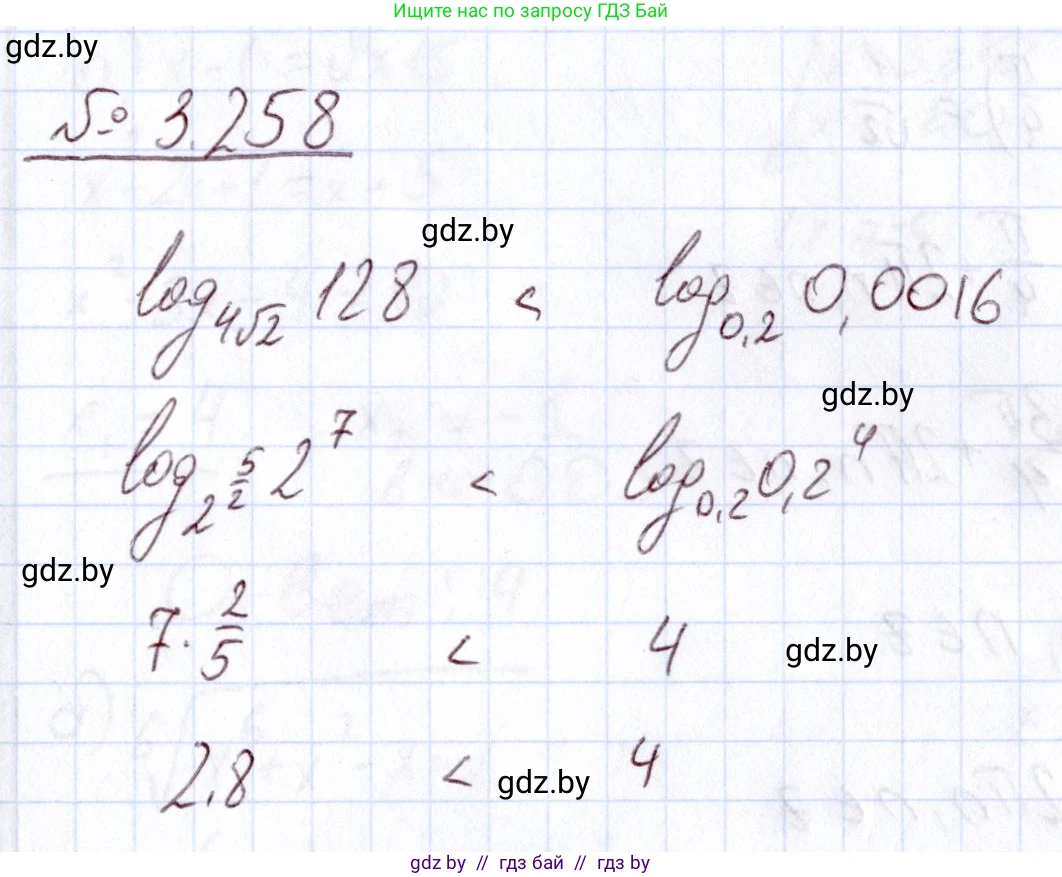 Ищите нас по запросу ГДЗ Бай
gdz.by
№ 3.258
gdz.by
log_{4√2} 128 < log_{0,2} 0,0016
gdz.by
log_{2^{5/2}} 2^7 < log_{0,2} 0,2^4
gdz.by
7 · 2/5 < 4
gdz.by
2.8 < 4
gdz.by
gdz by // гдз бай // gdz by